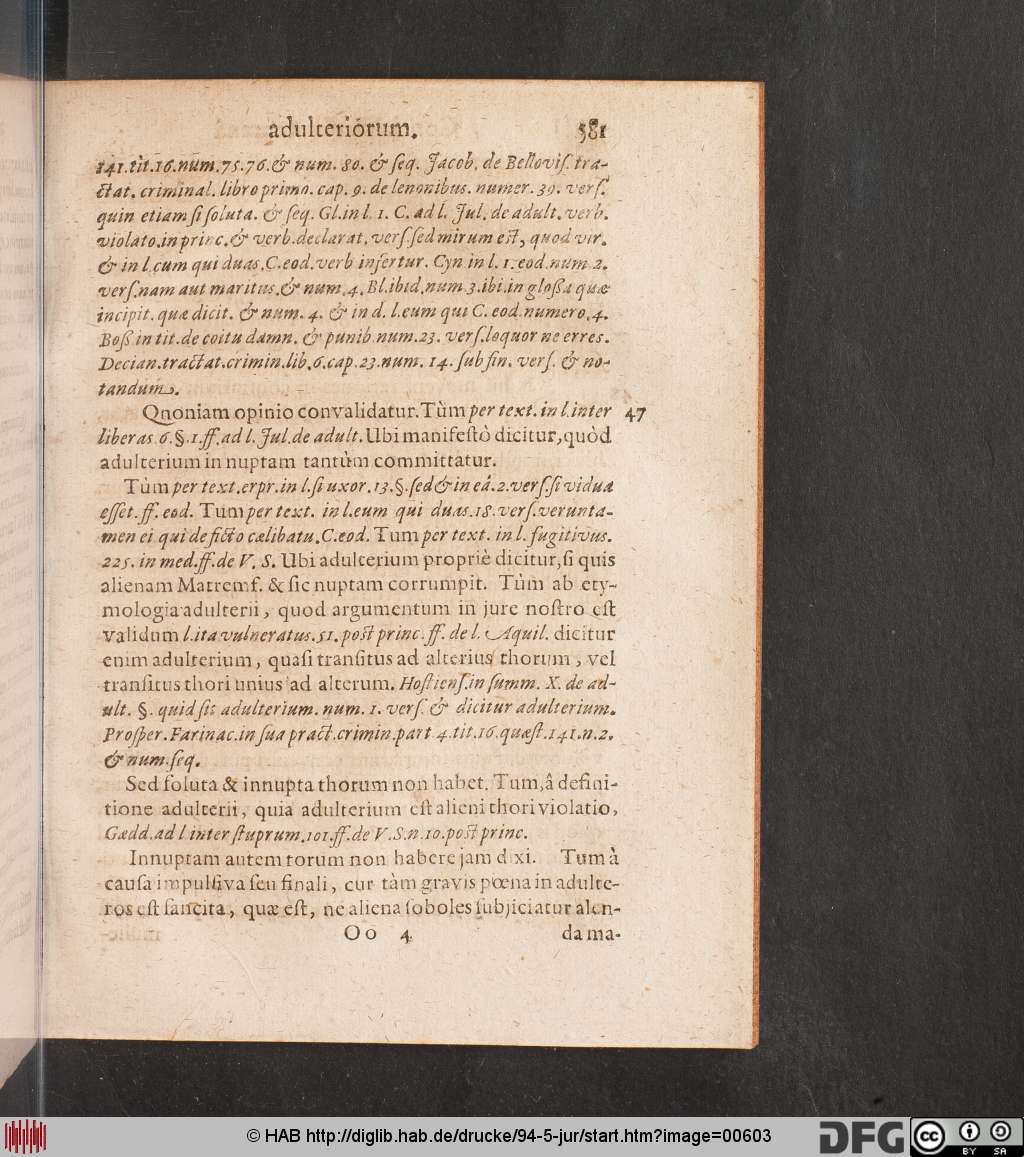 adulteriorum. 581
141.tit.16.num.75.76.& num. 80. & ſeq. Jacob. de Belloviſ. tra-
ctat. criminal. libro primo. cap. 9. de lenonibus. numer. 39. verſ.
quin etiam ſi ſoluta. & ſeq. Gl. in l. 1. C. ad l. Jul. de adult. verb.
violato. in princ. & verb. declarat. verſ. ſed mirum est, quod vir.
& in l. cum qui duas. C. eod. verb inſertur. Cyn in l. 1. eod. num. 2.
verſ. nam aut maritus. & num. 4. Bl. ibid. num. 3. ibi. in gloßa quæ
incipit. quæ dicit. & num. 4. & in d. l. eum qui C. eod. numero. 4.
Boß in tit. de coitu damn. & punib num. 23. verſ. loquor ne erres.
Decian. tractat. crimin. lib. 6. cap. 23. num. 14. ſub fin. verſ. & no-
tandum.
Qnoniam opinio convalidatur. Tùm per text. in l. inter 47
liberas 6. §. 1. ff. ad l. Jul. de adult. Ubi manifeſtò dicitur, quòd
adulterium in nuptam tantùm committatur.
Tùm per text. erpr. in l. ſi uxor. 13. §. ſed & in eâ. 2. verſ. ſi vidua
eſſet. ff. eod. Tum per text. in l. eum qui duas. 18. verſ. verunta-
men ei qui de ficto cælibatu. C. eod. Tum per text. in l. fugitivus.
225. in med. ff. de V. S. Ubi adulterium propriè dicitur, ſi quis
alienam Matremf. & ſic nuptam corrumpit. Tùm ab ety-
mologia adulterii, quod argumentum in jure noſtro eſt
validum l. ita vulneratus. 51. post princ. ff. de l. Aquil. dicitur
enim adulterium, quaſi tranſitus ad alterius thorum, vel
tranſitus thori unius ad alterum. Hoſtienſ. in ſumm. X. de ad-
ult. §. quid ſit adulterium. num. 1. verſ. & dicitur adulterium.
Proſper. Farinac. in ſua pract. crimin. part 4. tit. 16. quæſt. 141. n. 2.
& num. ſeq.
Sed ſoluta & innupta thorum non habet. Tum, â defini-
tione adulterii, quia adulterium eſt alieni thori violatio,
Gædd. ad l inter ſtuprum. 101. ff. de V. S. n. 10. post princ.
Innuptam autem torum non habere jam dixi. Tum à
cauſa impulſiva ſeu finali, cur tàm gravis pœna in adulte-
ros eſt ſancita, quæ eſt, ne aliena ſoboles ſubjiciatur alen-
Oo 4 da ma-
© HAB http://diglib.hab.de/drucke/94-5-jur/start.htm?image=00603
DFG cc BY SA